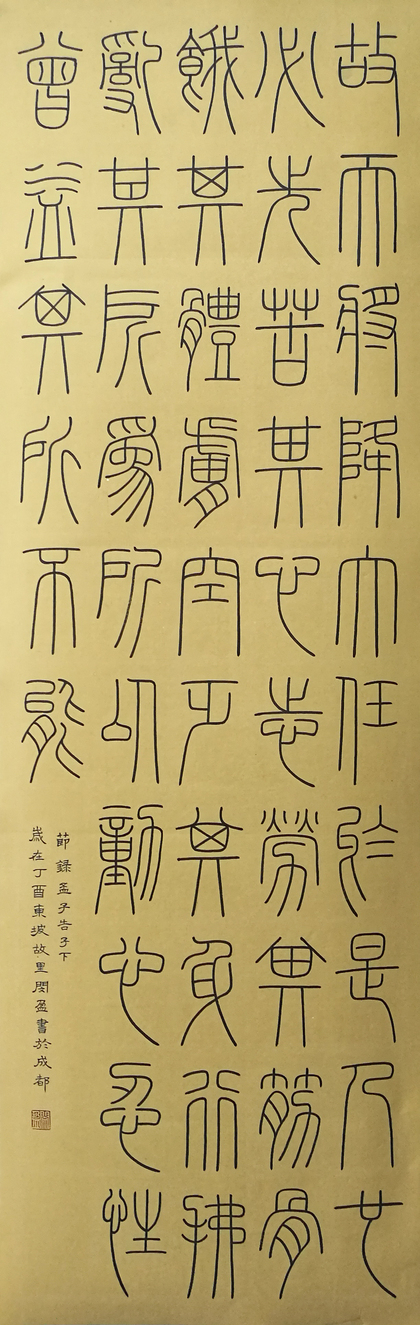 故而將降大任於是人也
必先苦其心志勞其筋骨
餓其體膚空乏其身行拂
亂其所爲所以動心忍性
曾益其所不能
節錄孟子告子下
歲在丁酉東坡故里閔盈書於成都